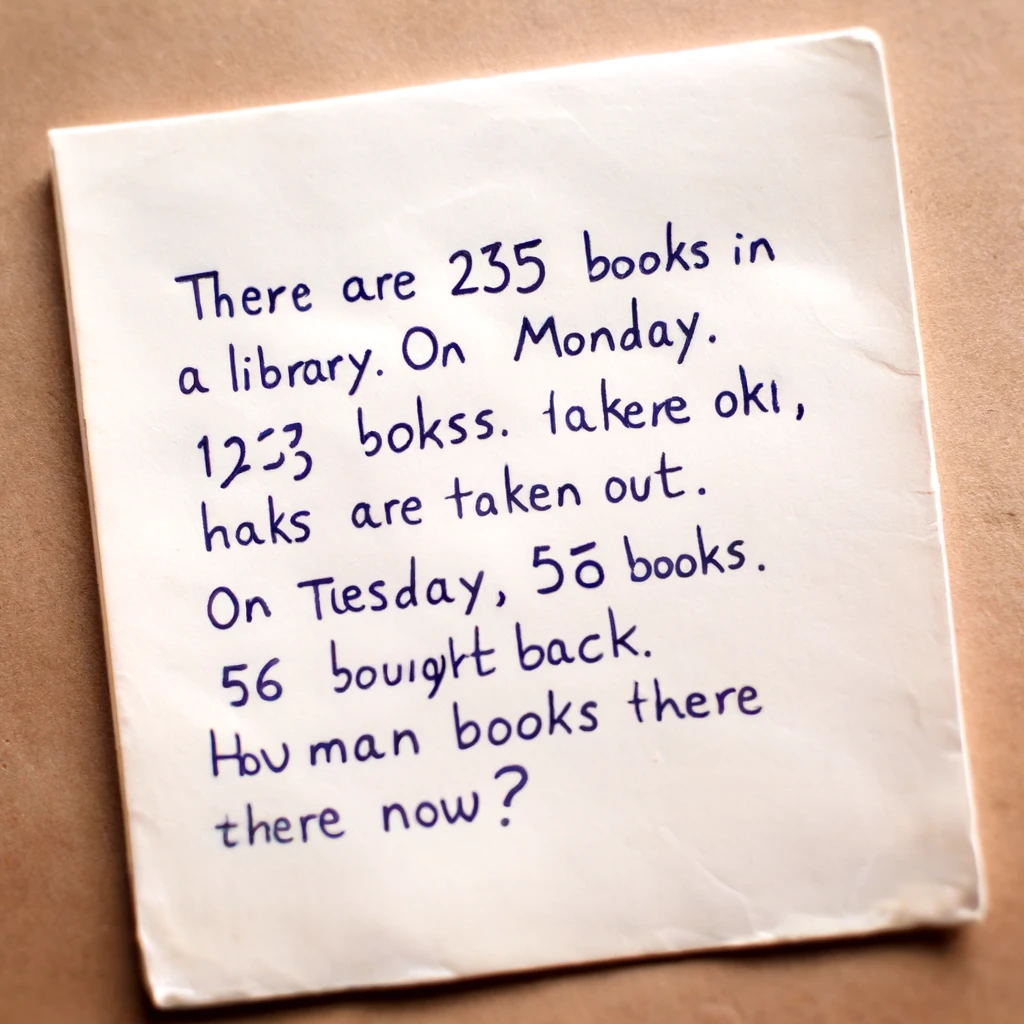 There are 235 books in
a library. On Monday.
bokss. takere okı,
haks are taken out.
On Tuesday, books.
56 back.
man books there
there now?